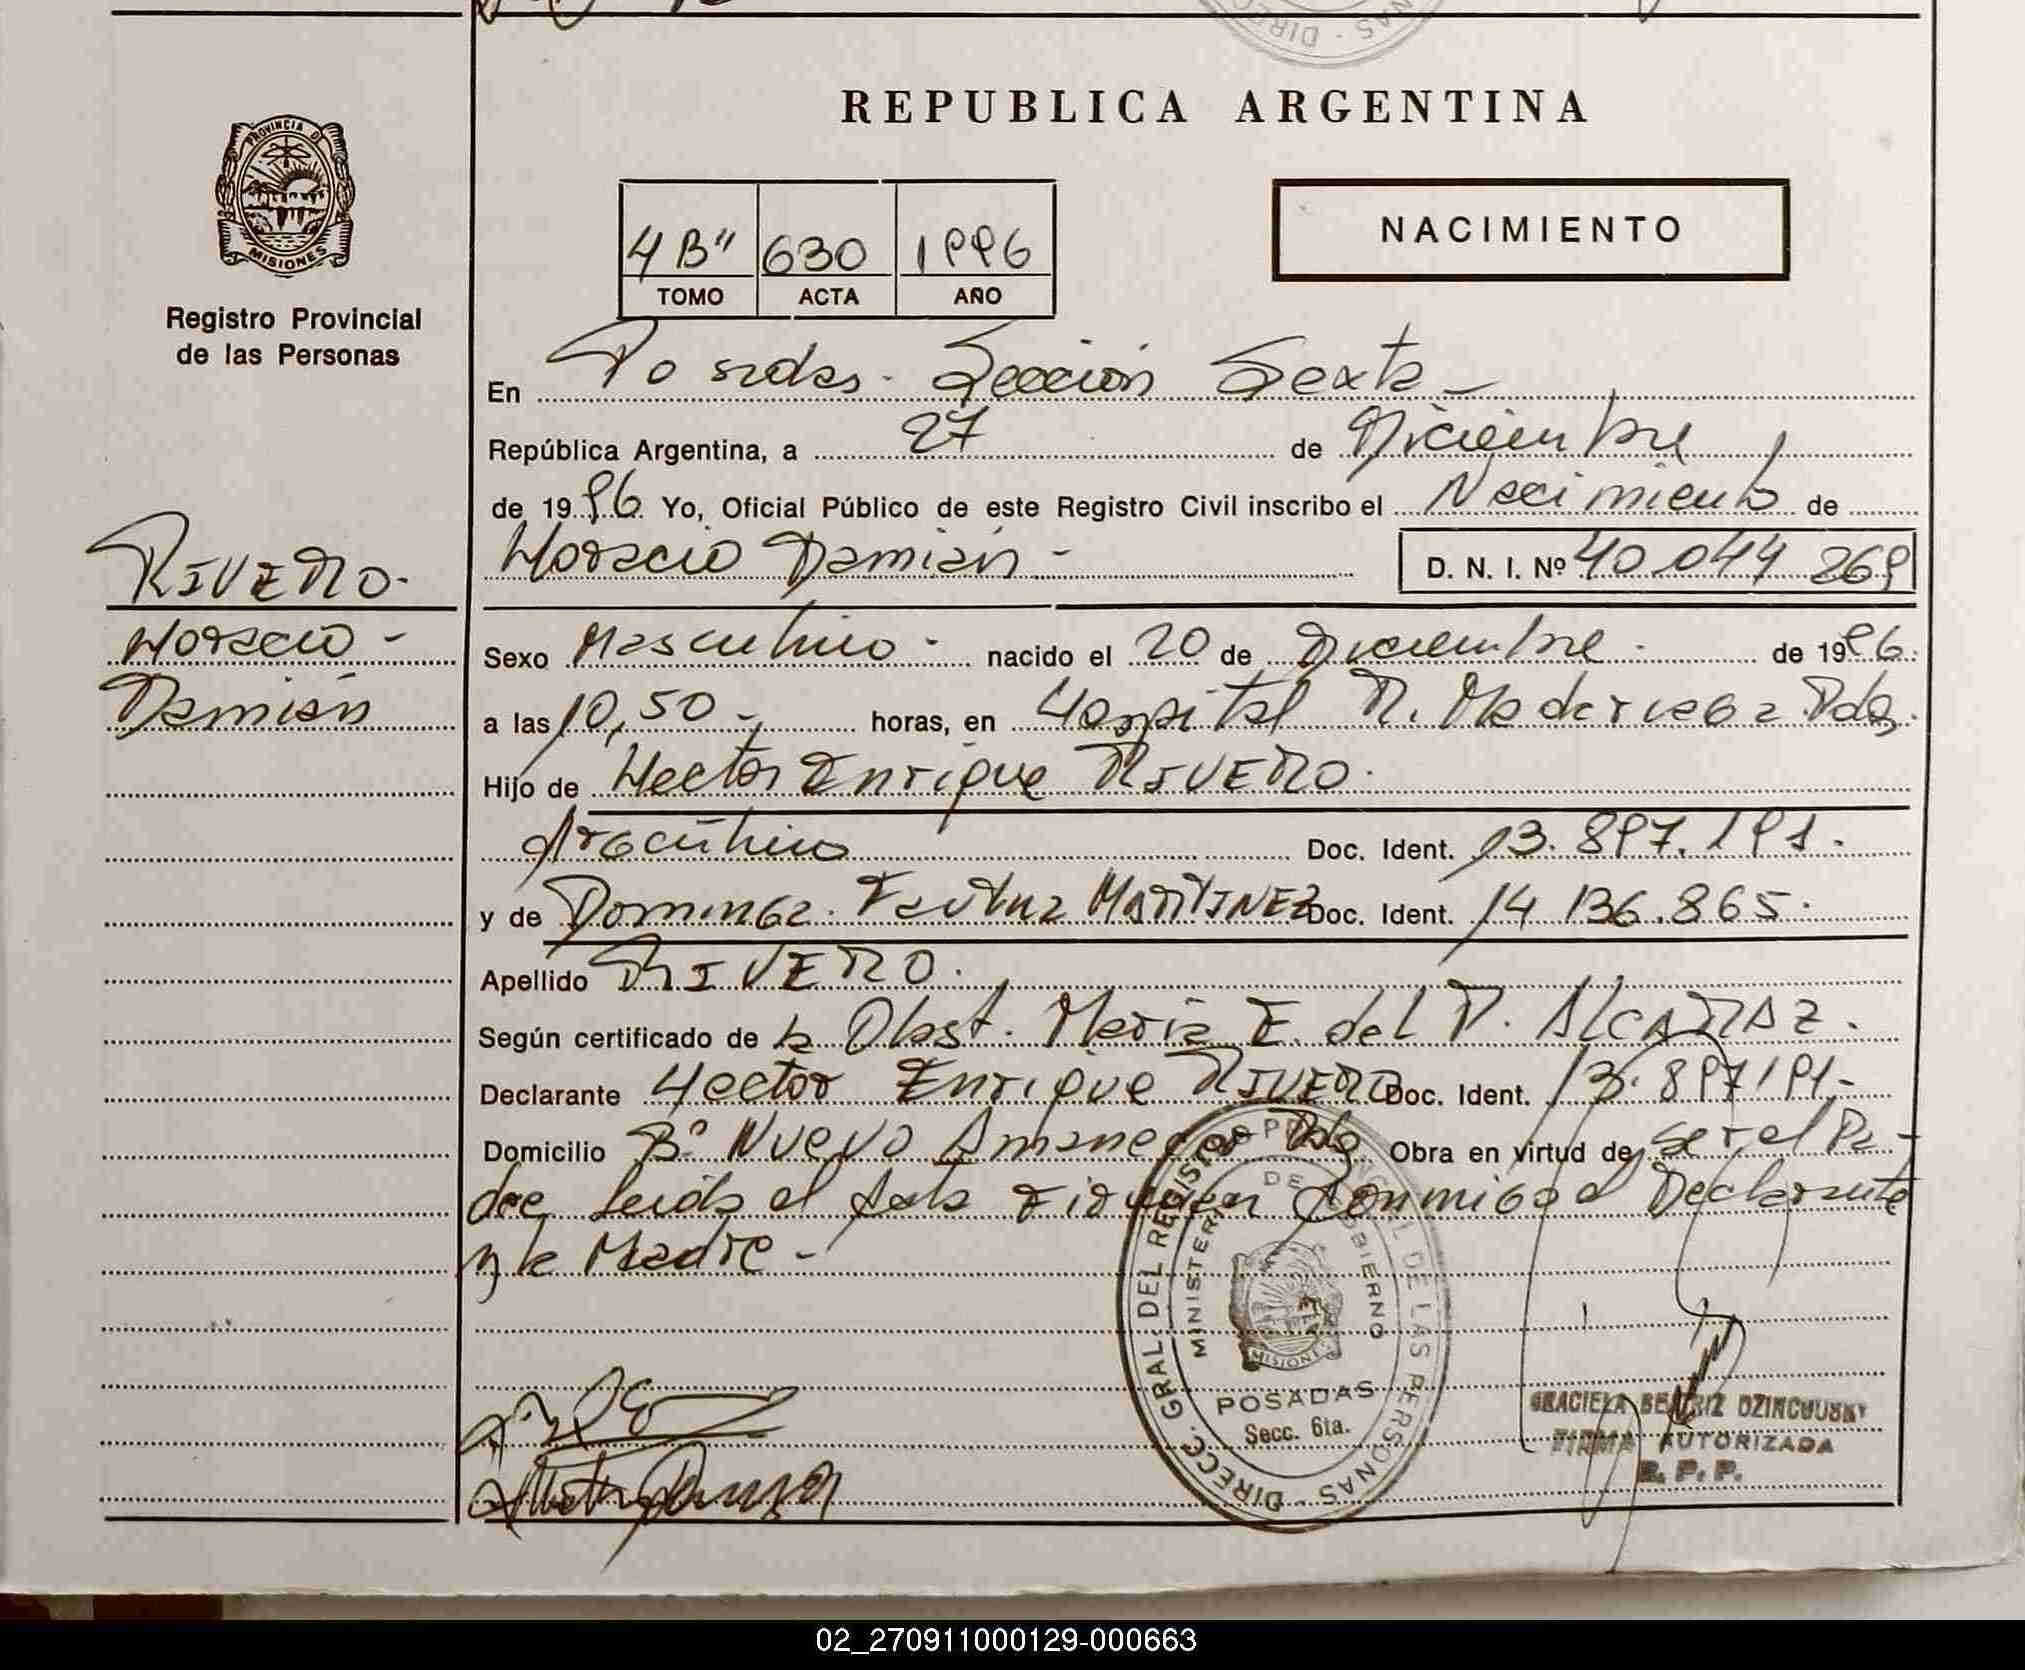 REPUBLICA ARGENTINA
PROVINCIA DE
MISIONES
Registro Provincial
de las Personas
4 B" 630 1996
TOMO ACTA AÑO
NACIMIENTO
En Posadas - Sección Sexta -
República Argentina, a 27 de Diciembre
de 1996 Yo, Oficial Público de este Registro Civil inscribo el Nacimiento de
Horacio Damián - D. N. I. Nº 40.044 269
RIVERO.
Horacio -
Damián
Sexo Masculino - nacido el 20 de Diciembre - de 1996.
a las 10,50 - horas, en Hospital R. Madariaga Pdas.
Hijo de Hector Enrique RIVERO.
Argentino Doc. Ident. 13.897.191.
y de Dominga MARTINEZ Doc. Ident. 14 136.865.
Apellido RIVERO.
Según certificado de la Obst. Maria E. del P. ALCARAZ.
Declarante Hector Enrique RIVERO Doc. Ident. 13.897191-
Domicilio Bº Nuevo Amanecer Pdas Obra en virtud de ser el Pa-
dre Leída el Acta Firman Conmigo el Declarante
y la Madre -
DIRECC. GRAL. DEL REGISTRO PROVINCIAL DE LAS PERSONAS
MINISTERIO DE GOBIERNO
MISIONES
POSADAS
Secc. 6ta.
GRACIELA BEATRIZ
FIRMA AUTORIZADA
R. P. P.
02_270911000129-000663